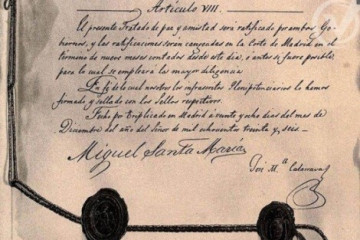 Artículo VIII.
El presente Tratado de paz y amistad será ratificado por ambos Go-
biernos, y las ratificaciones serán cangeadas en la Corte de Madrid en el
término de nueve meses contados desde este dia, o antes si fuere posible
para lo cual se empleará la mayor diligencia.
En fé de lo cual nosotros los infrascritos Plenipotenciarios lo hemos
firmado y sellado con los Sellos respectivos.
Fecho por triplicado en Madrid á veinte y ocho dias del mes de
Diciembre del año del Señor de mil ochocientos treinta y seis.
Miguel Santa María
José M.ª Calatrava